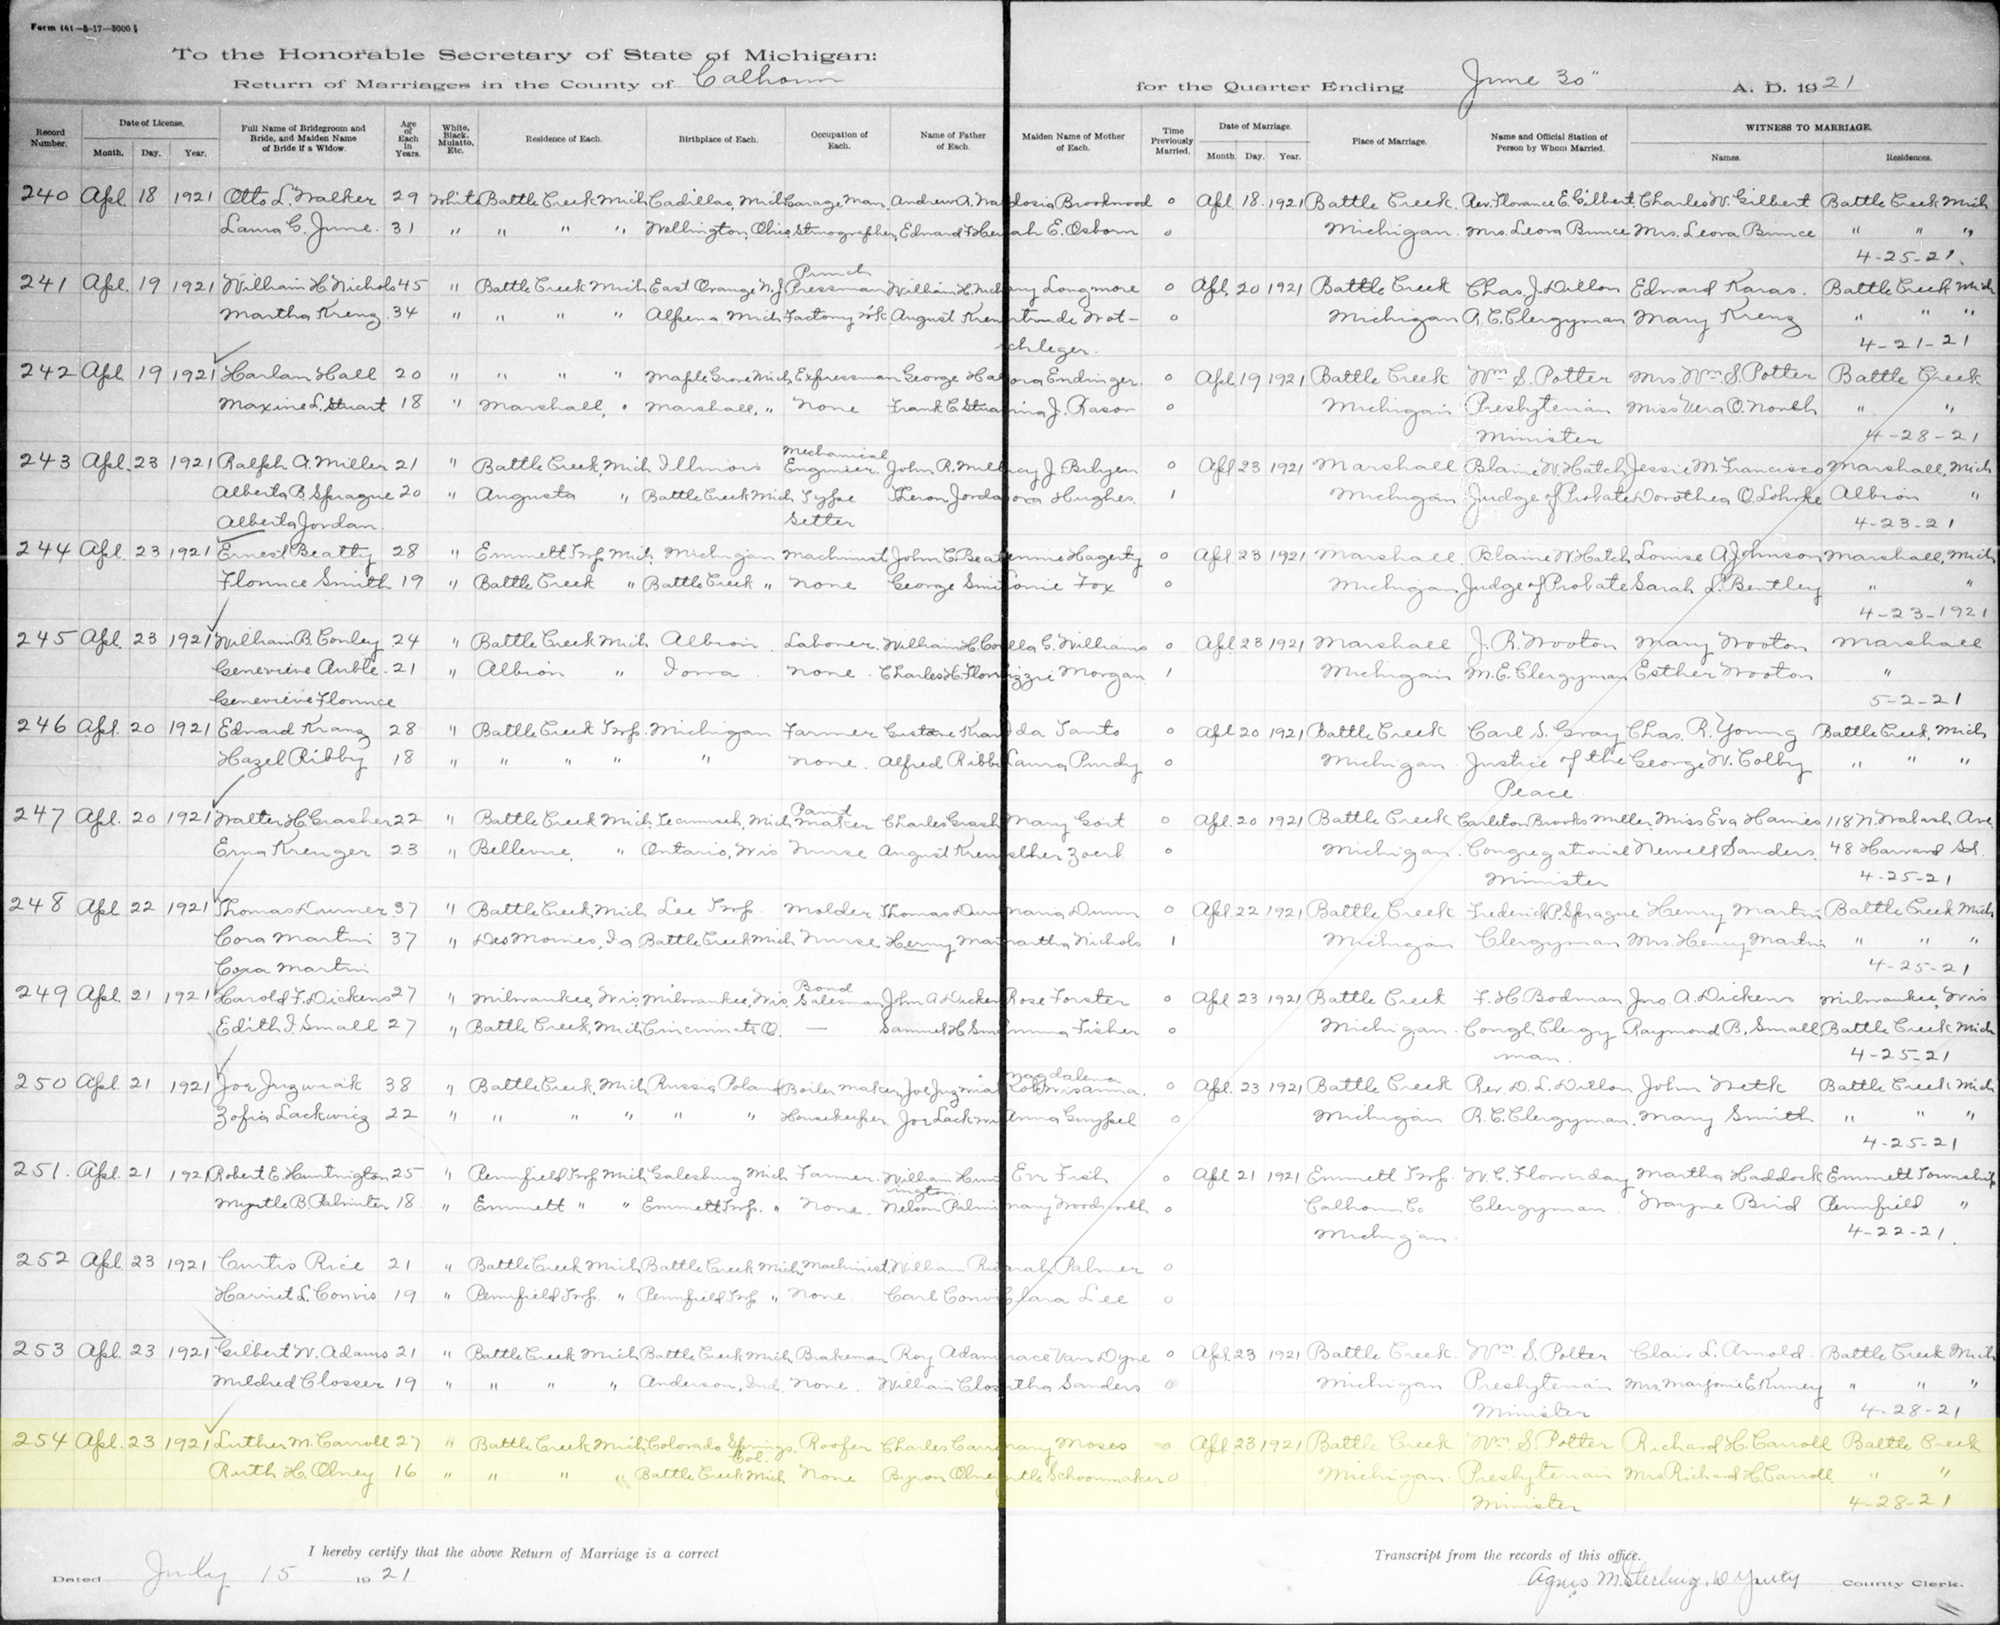 Form 161-5-17-3000
To the Honorable Secretary of State of Michigan:
Return of Marriages in the County of Calhoun for the Quarter Ending June 30" A. D. 1921
Record Number. Date of License. Month. Day. Year. Full Name of Bridegroom and Bride, and Maiden Name of Bride if a Widow. Age of Each in Years. White, Black, Mulatto, Etc. Residence of Each. Birthplace of Each. Occupation of Each. Name of Father of Each. Maiden Name of Mother of Each. Time Previously Married. Date of Marriage. Month Day. Year. Place of Marriage. Name and Official Station of Person by Whom Married. WITNESS TO MARRIAGE. Names. Residences.
240 Apl. 18 1921 Otto L. Walker 29 White Battle Creek Mich Cadillac, Mich Garage Man Andrew A. Wa Brookwood 0 Apl 18. 1921 Battle Creek Rev. Florance E. Gilbert Charles W. Gilbert Battle Creek Mich
Laura G. June. 31 " " " " Wellington, Ohio Stenographer Edward E. Osborn 0 Michigan. Mrs. Leora Bunce Mrs. Leora Bunce " " "
4-25-21.
Punch
241 Apl. 19 1921 William H. Nichols 45 " Battle Creek Mich East Orange N.J. Pressman William H. Nich Longmore 0 Apl. 20 1921 Battle Creek Chas. J. Dillon Edward Karas. Battle Creek Mich
Martha Krenz 34 " " " " Alpena Mich Factory wk August Kren trude Wot- 0 Michigan R.C. Clergyman Mary Krenz " " "
chleger. 4-21-21
242 Apl 19 1921 Harlan Hall 20 " " " " Maple Grove Mich Expressman George Ha ora Endinger 0 Apl 19 1921 Battle Creek Wm S. Potter Mrs. Wm S. Potter Battle Creek
Maxine L. Stuart 18 " Marshall, " Marshall, " None Frank C. Stua na J. Kason 0 Michigan Presbyterian Miss Vera O. North " "
Minister 4-28-21
Mechanical
243 Apl. 23 1921 Ralph A. Miller 21 " Battle Creek, Mich Illinois Engineer John R. Mill cy J. Bilyen 0 Apl 23 1921 Marshall Blaine W. Hatch Jessie M. Francisco Marshall, Mich
Alberta B. Sprague 20 " Augusta " Battle Creek Mich Type Theron Jorda ora Hughes. 1 Michigan Judge of Probate Dorothea O. Lohrke Albion "
Alberta Jordan. Setter 4-23-21
244 Apl. 23 1921 Ernest Beatty 28 " Emmett Twp Mich. Michigan Machinist John C. Beat ennie Hagerty 0 Apl 23 1921 Marshall Blaine W. Hatch Louise A. Johnson Marshall, Mich
Florence Smith 19 " Battle Creek " Battle Creek " None George Smi onie Fox 0 Michigan Judge of Probate Sarah L. Bentley " "
4-23-1921
245 Apl. 23 1921 William B. Conley 24 " Battle Creek Mich Albion Laborer William H. Co lla G. Williams 0 Apl 23 1921 Marshall J. R. Wooton Mary Wooton Marshall
Genevieve Auble 21 " Albion " Iowa None Charles H. Flor izzie Morgan 1 Michigan M.E. Clergyman Esther Wooton "
Genevieve Florence 5-2-21
246 Apl. 20 1921 Edward Kranz 28 " Battle Creek Twp. Michigan Farmer Gustave Kran da Tanto 0 Apl 20 1921 Battle Creek Carl S. Gray Chas. R. Young Battle Creek, Mich
Hazel Ribby 18 " " " " " None. Alfred Ribb Laura Purdy 0 Michigan Justice of the George W. Colby " " "
Peace
Paint
247 Apl. 20 1921 Walter H. Grasher 22 " Battle Creek Mich. Tecumseh, Mich maker Charles Grash Mary Gort 0 Apl. 20 1921 Battle Creek Carleton Brooks Miller Miss Eva Hames 118 N. Wabash Ave.
Erna Krenger 23 " Bellevue, " Ontario, Wis Nurse August Kren sther Zoerb 0 Michigan. Congregational Newell Sanders. 48 Harvard St.
Minister 4-25-21
248 Apl 22 1921 Thomas Dunner 37 " Battle Creek, Mich Lee Twp. Molder Thomas Dun Maria Dunn 0 Apl. 22 1921 Battle Creek Frederick P. Sprague Henry Martin Battle Creek Mich
Cora Martin 37 " Des Moines, Ia Battle Creek Mich Nurse Henry Mar artha Nichols 1 Michigan Clergyman Mrs. Henry Martin " " "
Cora Martin 4-25-21
Bond
249 Apl. 21 1921 Harold F. Dickens 27 " Milwaukee, Wis. Milwaukee, Wis. Salesman John A. Dicken Rose Forster 0 Apl 23 1921 Battle Creek F. H. Bodman Jno. A. Dickens Milwaukee, Wis
Edith I. Small 27 " Battle Creek, Mich Cincinnati O. — Samuel H. Sm mma Fisher 0 Michigan. Congl. Clergy Raymond B. Small Battle Creek Mich
man. 4-25-21
Magdalena
250 Apl. 21 1921 Joe Juzwiak 38 " Battle Creek, Mich Russia Poland Boiler maker Joe Juzwiak 0 Apl. 23 1921 Battle Creek Rev. D. L. Dillon John Netk Battle Creek Mich
Zofia Lackwicz 22 " " " " " " Housekeeper Joe Lackwi Anna 0 Michigan R. C. Clergyman. Mary Smith " " "
4-25-21
251. Apl. 21 1921 Robert E. Huntington 25 " Pennfield Twp Mich Galesburg Mich Farmer. William Hun Eve Fish 0 Apl 21 1921 Emmett Twp. W. C. Flowerday Martha Haddock Emmett Township
ington
Myrtle B. Palmiter 18. " Emmett " " Emmett Twp. " None. Nelson Palmi Mary Woodworth 0 Calhoun Co Clergyman. Wayne Bird Pennfield "
Michigan. 4-22-21.
252 Apl. 23 1921 Curtis Rice 21 " Battle Creek Mich Battle Creek Mich. Machinist William Ri arah Palmer 0
Harriet L. Convis 19 " Pennfield Twp. " Pennfield Twp " None. Carl Convi Clara Lee 0
253 Apl. 23 1921 Gilbert W. Adams 21 " Battle Creek Mich Battle Creek Mich Brakeman Roy Adam race Van Dyne 0 Apl. 23 1921 Battle Creek. Wm S. Potter Clair L. Arnold. Battle Creek Mich
Mildred Closser 19 " " " " Anderson, Ind. None. William Clos rtha Sanders 0 Michigan Presbyterian Mrs. Marjorie E. Kinney " " "
Minister 4-28-21
254 Apl. 23 1921 Luther M. Carroll 27 " Battle Creek Mich Colorado Springs. Roofer Charles Carr mary Moses 0 Apl 23 1921 Battle Creek Wm S. Potter Richard H. Carroll Battle Creek
Col.
Ruth H. Olney 16 " " " " Battle Creek Mich None Byron Olne rtle Schoonmaker 0 Michigan Presbyterian Mrs Richard H. Carroll " "
Minister 4-28-21
I hereby certify that the above Return of Marriage is a correct Transcript from the records of this office.
Dated July 15 1921 Agnes M. Sterling, Deputy County Clerk.